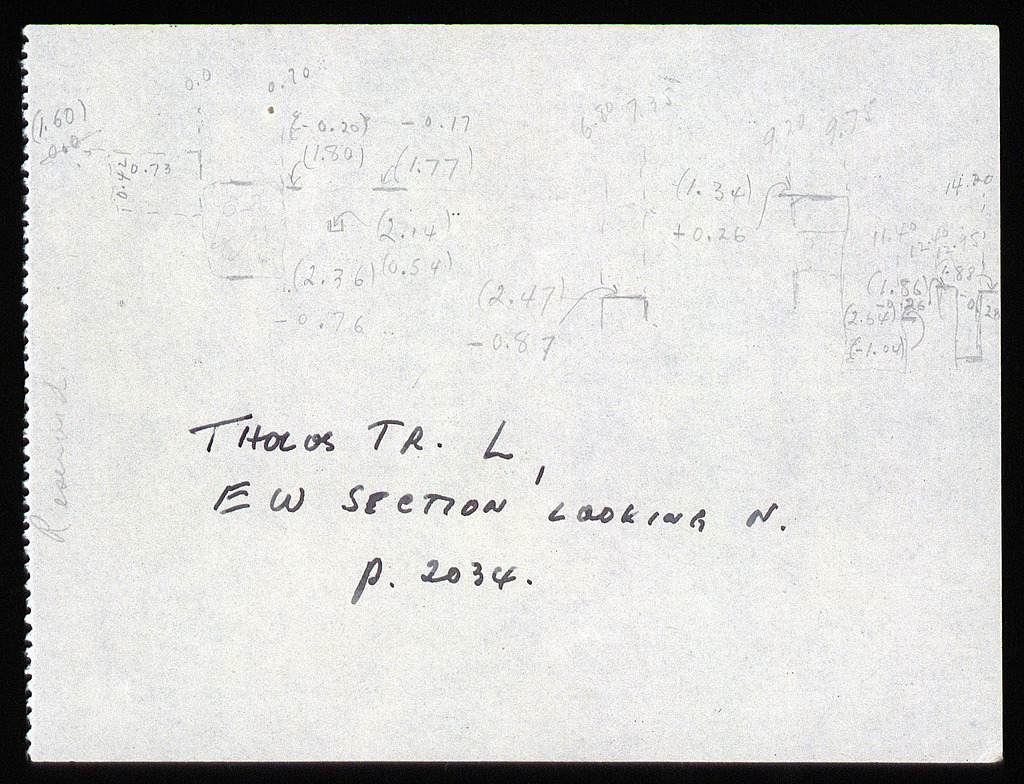 0.0 0.70
6.80 7.35
9.20 9.75
(1.60)
(-0.20) -0.17
0.42 0.73 (1.80) (1.77)
(1.34)
14.20
+0.26
(2.14)
11.40 12.40 12.95
(2.36) (0.54)
(2.47)
(1.86) (1.88)
-0.76
(2.64)
-0.87
(-1.04)
Reserved.
THOLOS TR. L,
EW SECTION LOOKING N.
p. 2034.